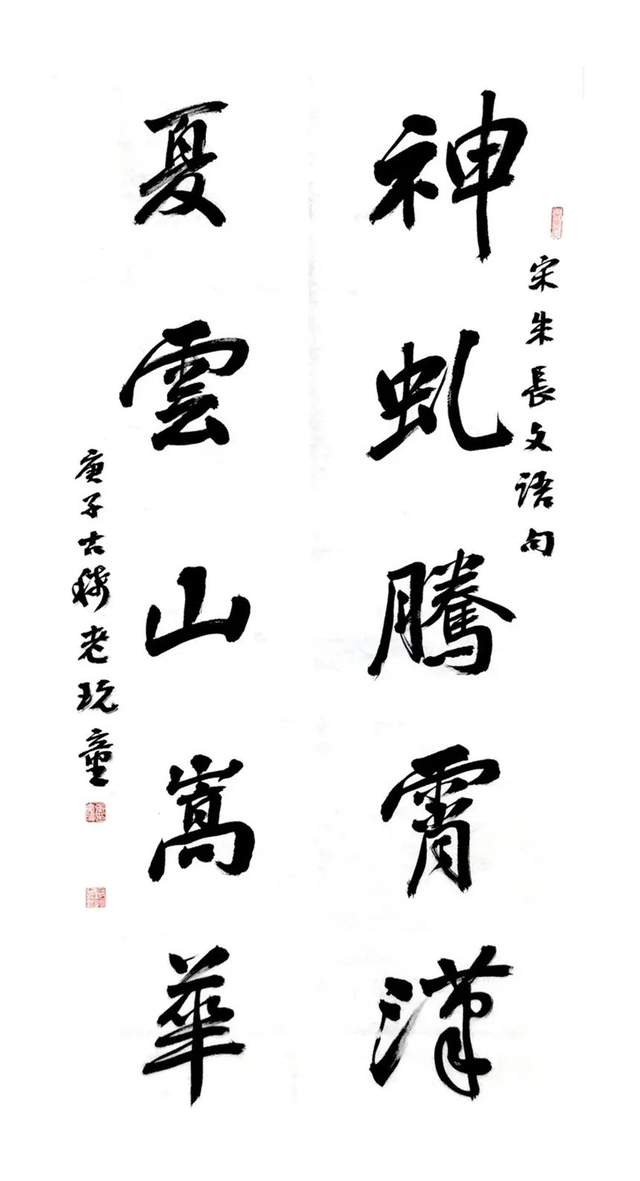 宋朱長文語句
神虬騰霄漢
夏雲山嵩華
庚子古稀老玩童